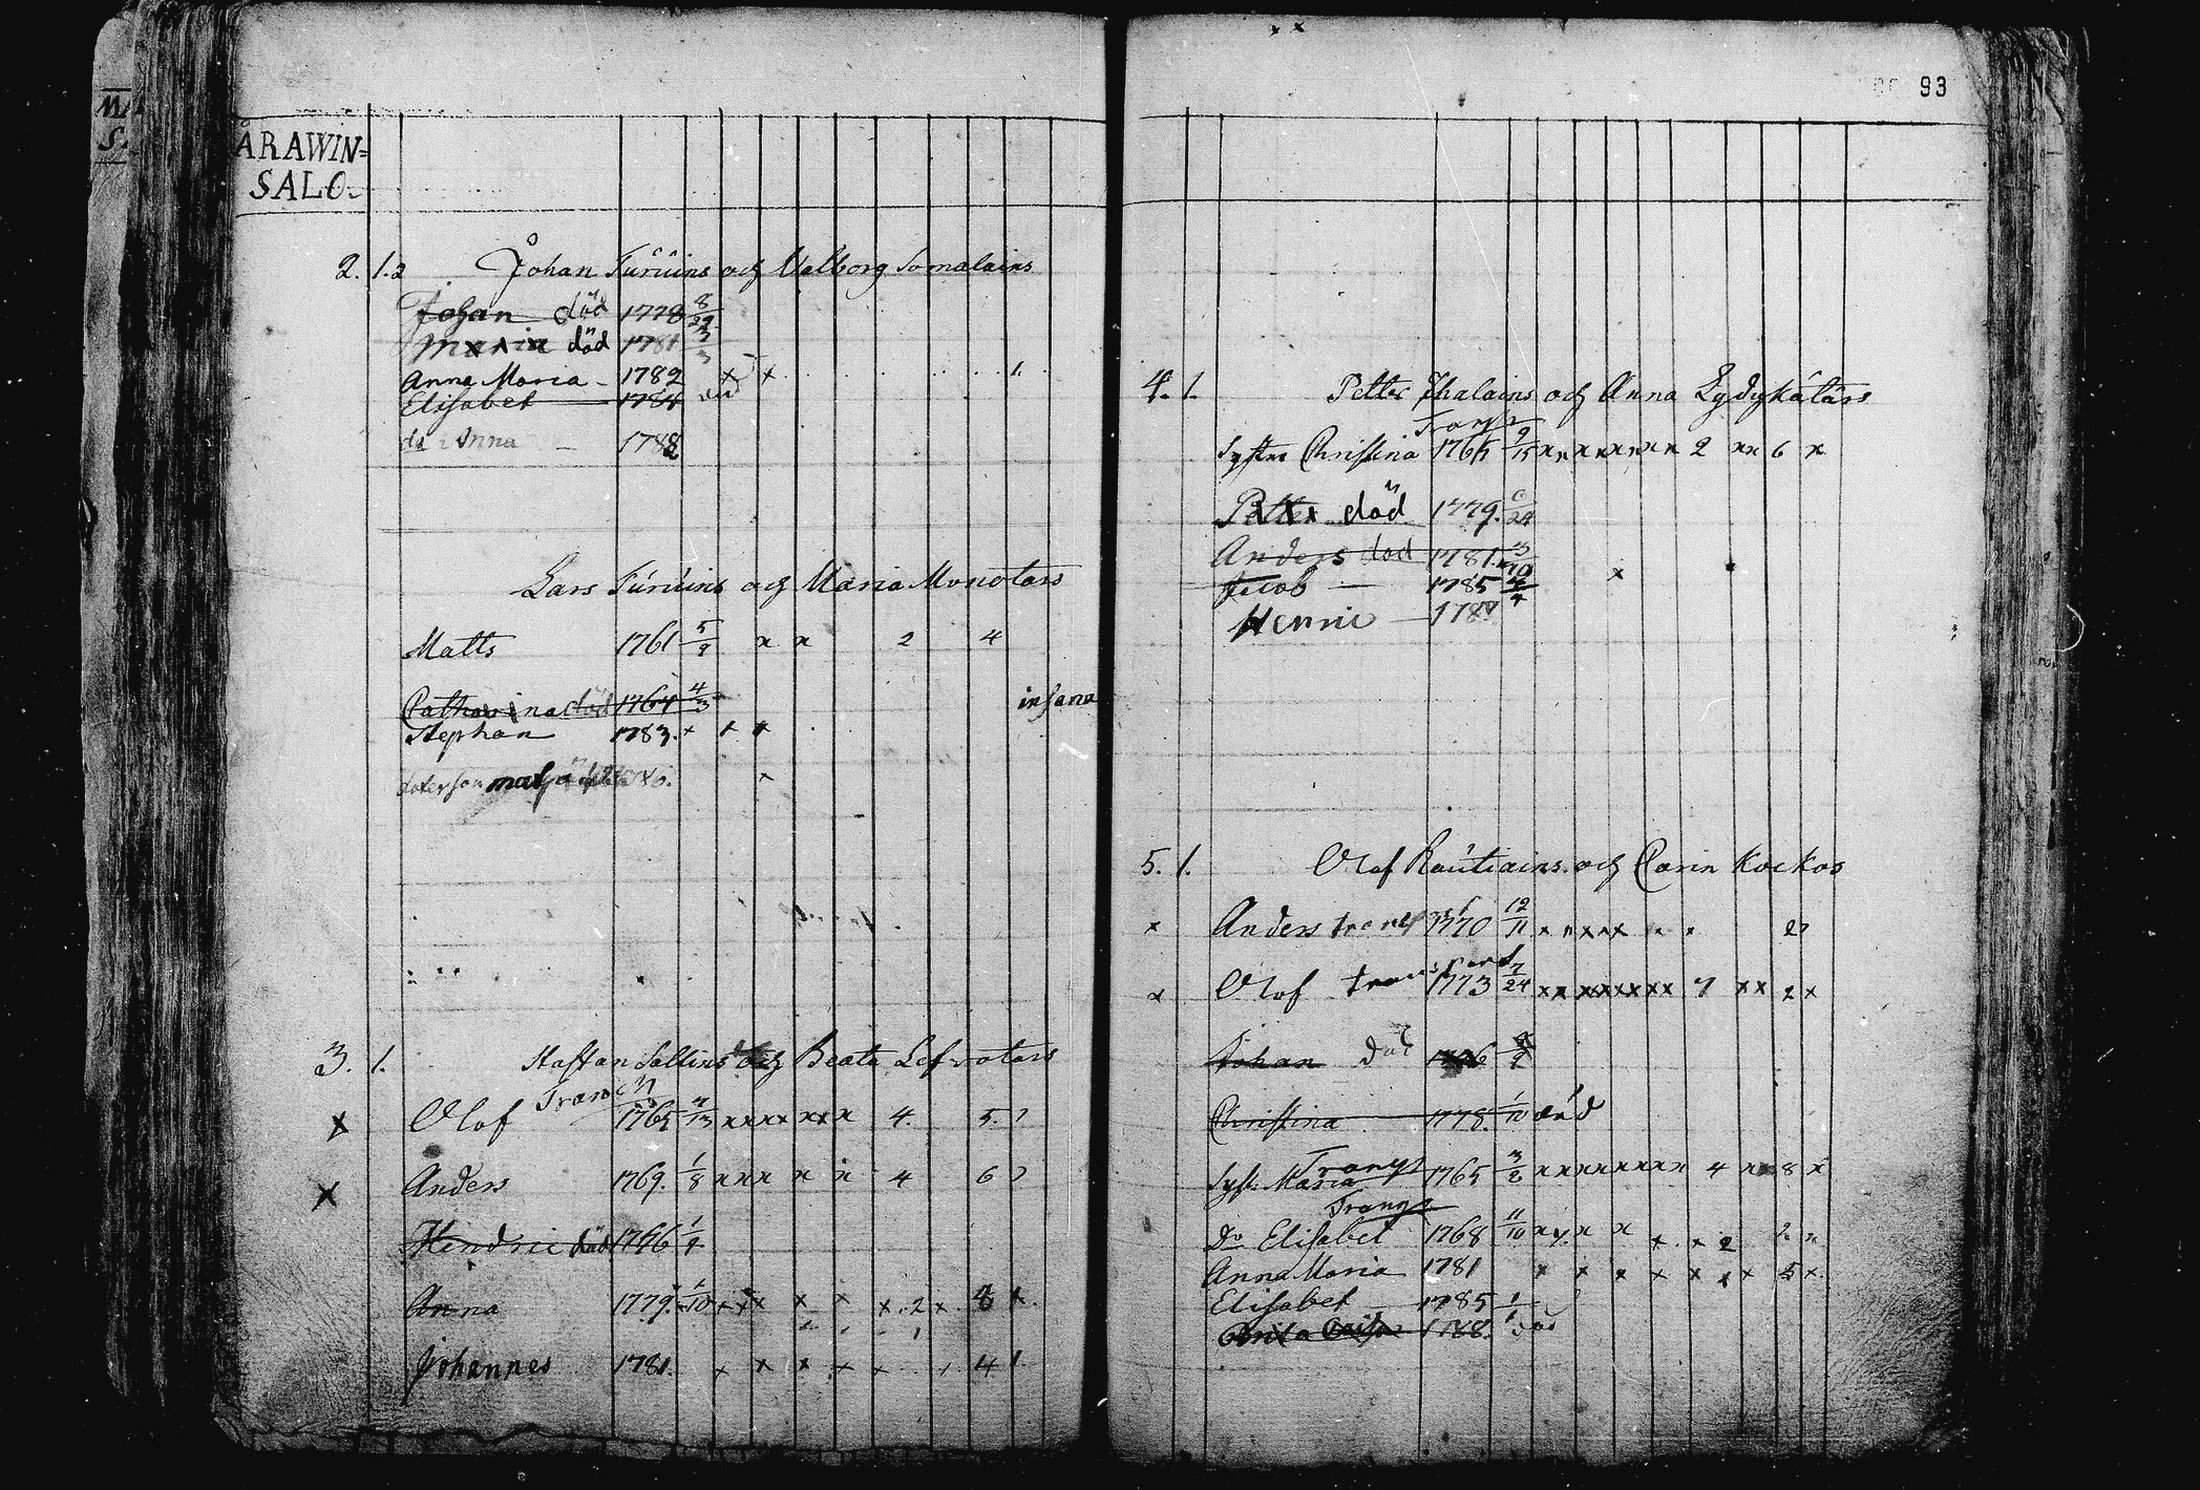 ÅRAWIN=
SALO.
2. 1.2 Johan Turuins och Valborg Somalains
Johan död 1778 8/29
Maria död 1781 3/3
Anna Maria - 1782 x x 1.
Elisabet 1784 död
Anna - 1788
Lars Turuins och Maria Monotars
Matts 1761 5/9 x x 2 4
Catharina död 1764 4/3 insana
Stephan 1783. x x x
x
3. 1. Staffan Sallins och Beata Lefvotars
Transp
x Olof 1765 11/13 x x x x x x x 4. 5.
x Anders 1769. 1/8 x x x x x 4 6
Hendric död 1776 1/9
Anna 1779. 1/10 x x x x x x . 2 x 8 x.
Johannes 1781. x x x x x 4 1
93
4. 1. Petter Ihalains och Anna Lydykätärs
Transp
Syster Christina 1765 9/15 x x x x x x x x 2 x x 6 x
Petter död 1779. 6/24
Anders död 1781. 3/10
Jacob — 1785 x
Henric — 178
5. 1. Olof Rautiains och Carin Kockos
x Anders transp 1770 12/11 x x x x x x x 2
x Olof transport 1773 7/24 x x x x x x x x 7 x x 2 x
Johan död 1776
Christina 1778. 1/10 död
Transp
Syst. Maria 1765 3/2 x x x x x x x x 4 x 8 x
Transp
Do Elisabet 1768 11/10 x x x x x x 2 2
Anna Maria 1781 x x x x x x x 5 x.
Elisabet 1785 1/1
Brita Caisa 1788. död